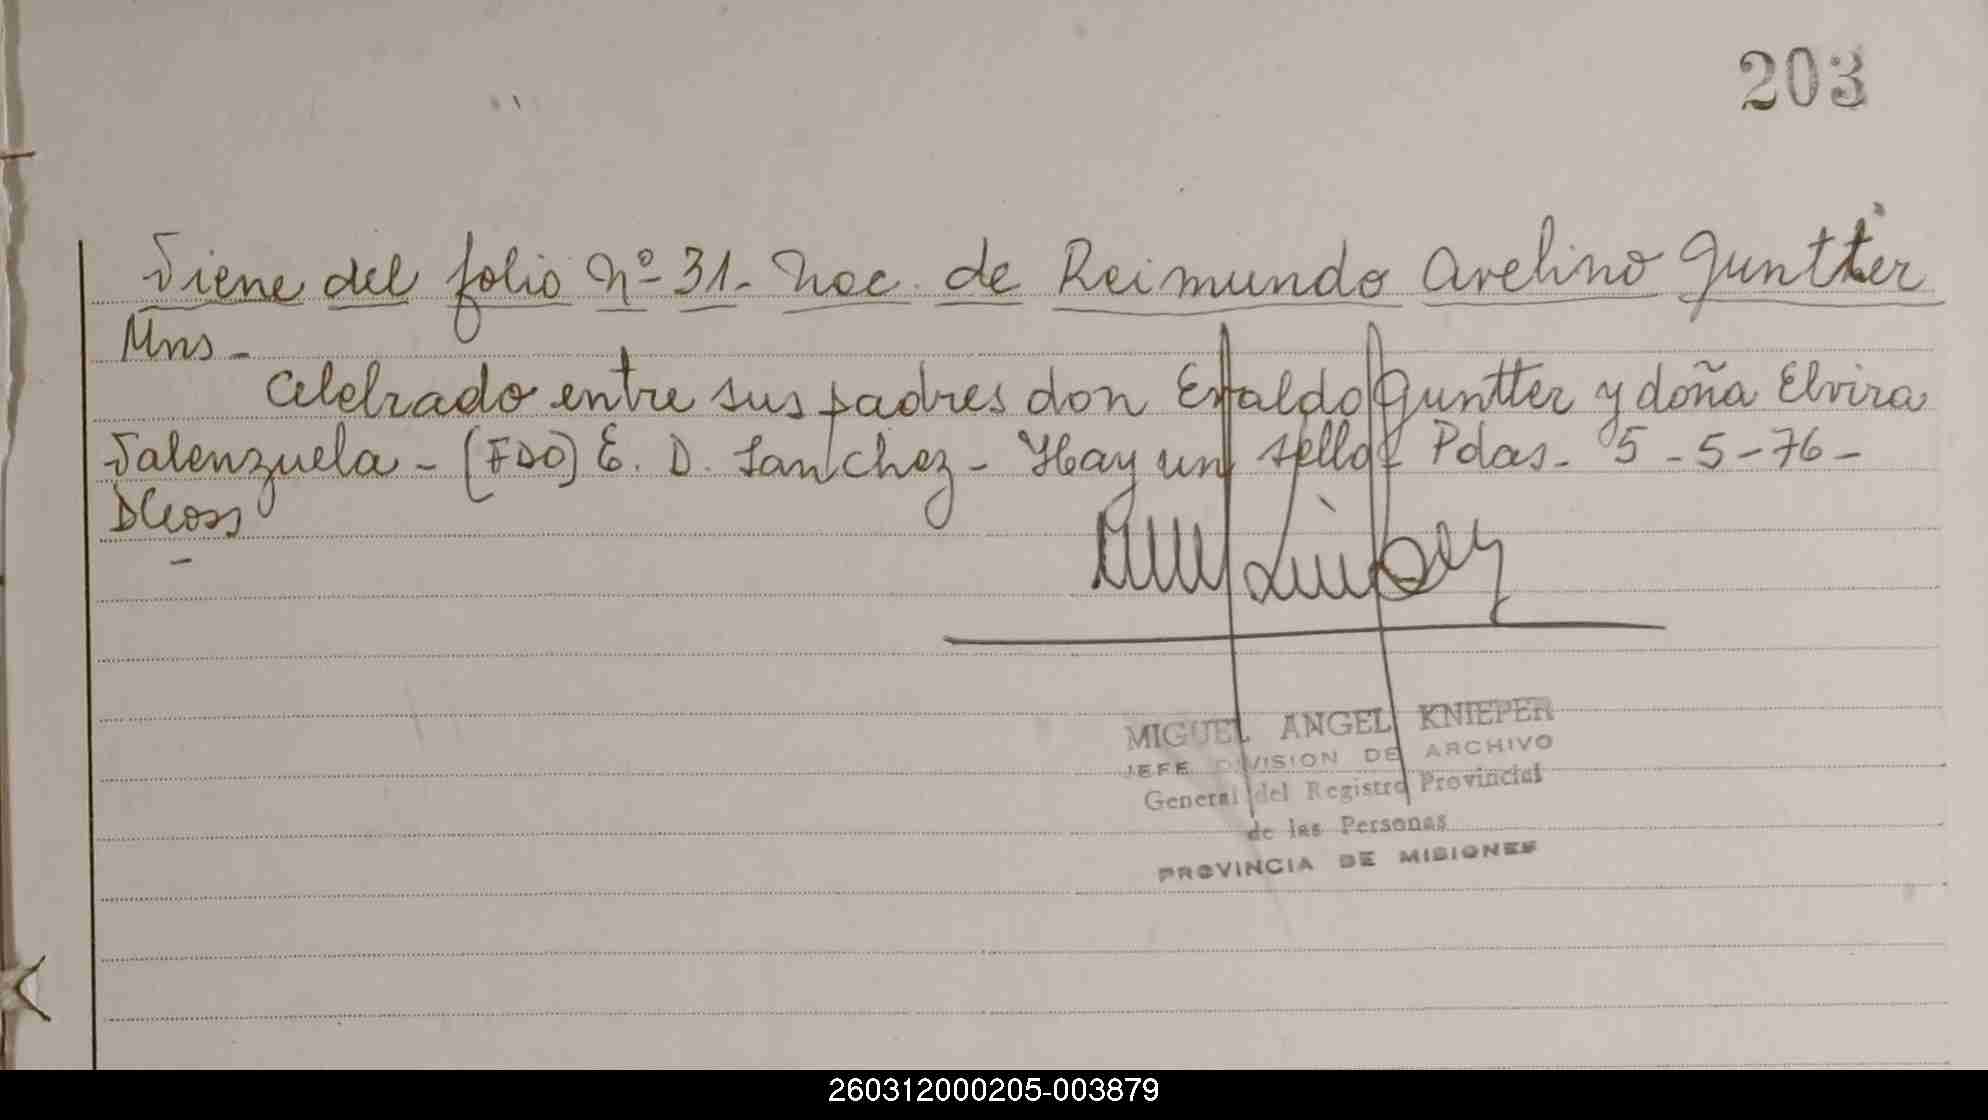 203
Viene del folio Nº 31. Nac. de Reimundo Avelino Guntter
Mns -
Celebrado entre sus padres don Evaldo Guntter y doña Elvira
Valenzuela - (FDO) E. D. Sanchez - Hay un sello Pdas. 5 - 5 - 76 -
MIGUEL ANGEL KNIEPER
JEFE DIVISION DE ARCHIVO
General del Registro Provincial
de las Personas
PROVINCIA DE MISIONES
260312000205-003879